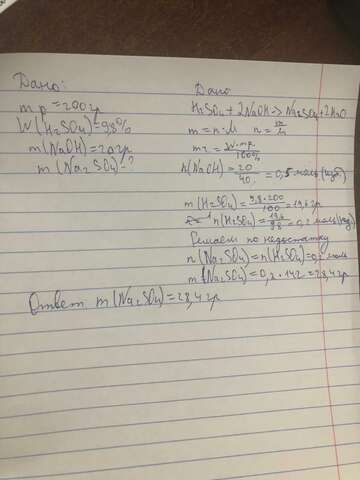 Дано:
m р = 200 гр
W(H₂SO₄)=9,8%
m(NaOH)=20 гр
m(Na₂SO₄)-?
Дано
H₂SO₄+2NaOH->Na₂SO₄+2H₂O
m=n·M n=m/M
mr=W·mр./100%
n(NaOH)=20/40=0,5 моль(изб)
m(H₂SO₄)=9,8·200/100=19,6 гр
n(H₂SO₄)=19,6/98=0,2 моль(нед)
Решаем по недостатку
n(Na₂SO₄)=n(H₂SO₄)=0,2 моль
m(Na₂SO₄)=0,2·142=28,4 гр
Ответ m(Na₂SO₄)=28,4 гр